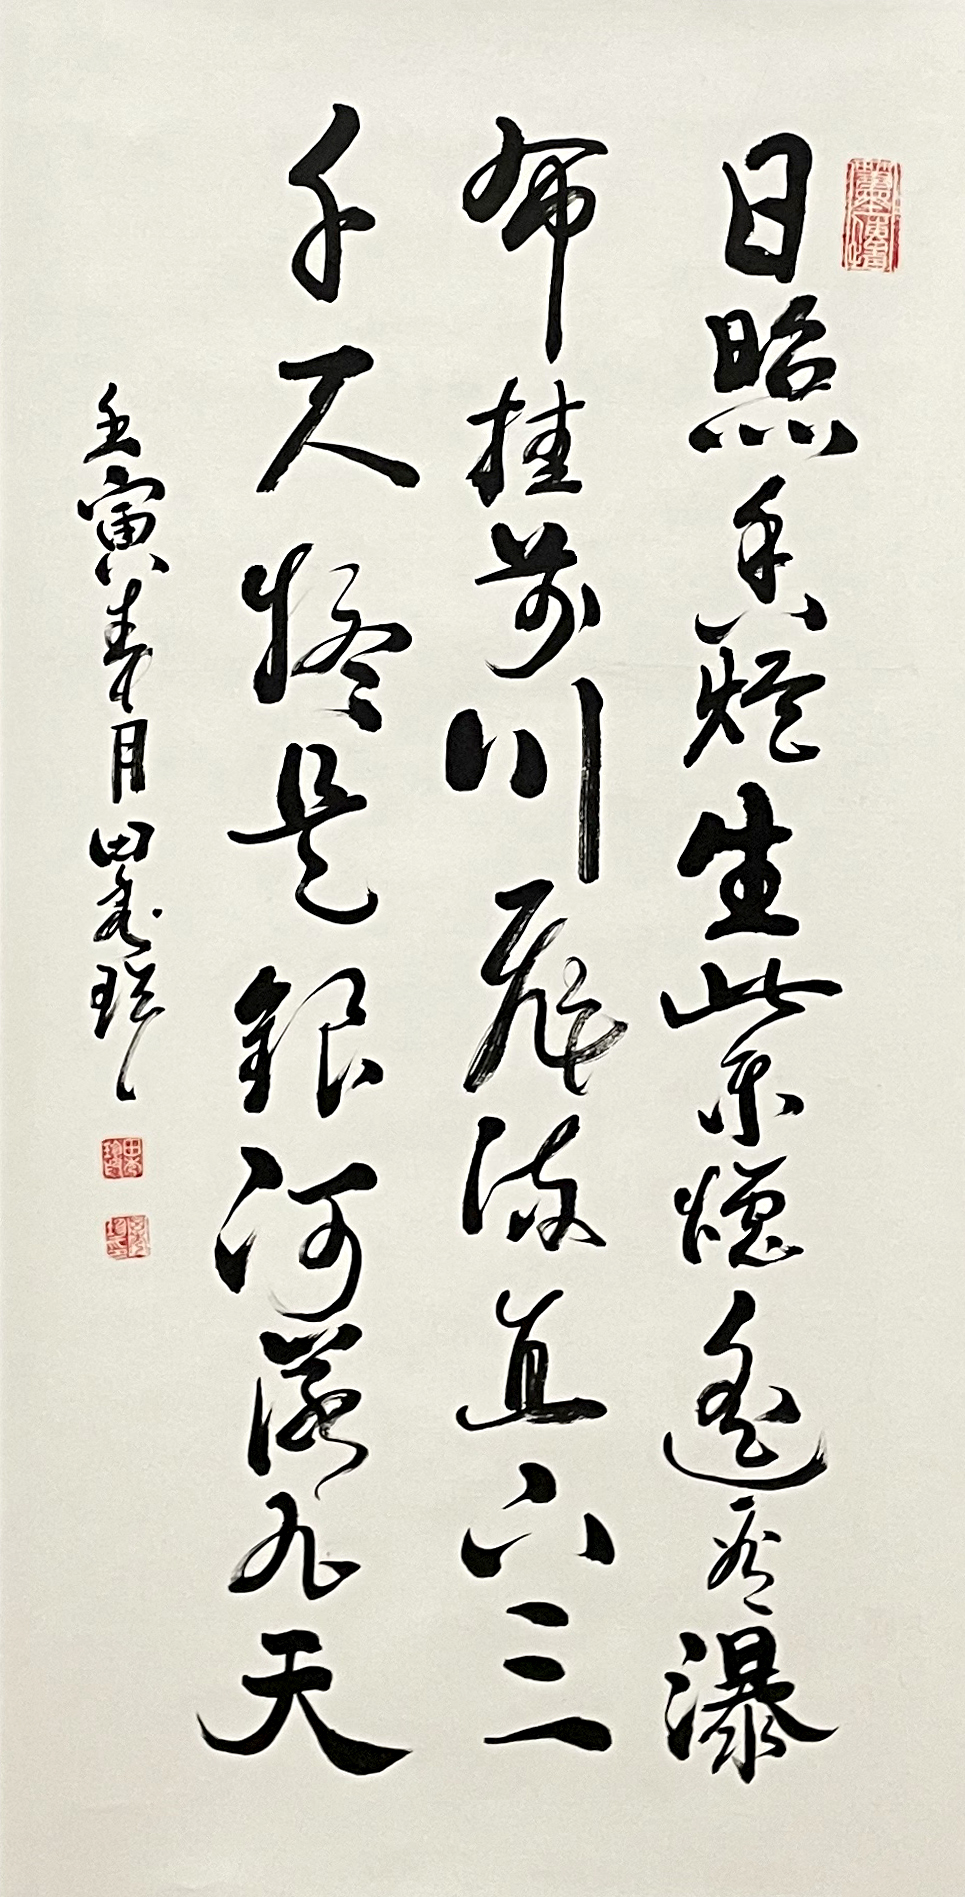 日照香爐生紫煙遙看瀑
布挂前川飛流直下三
千尺疑是銀河落九天
壬寅春月田